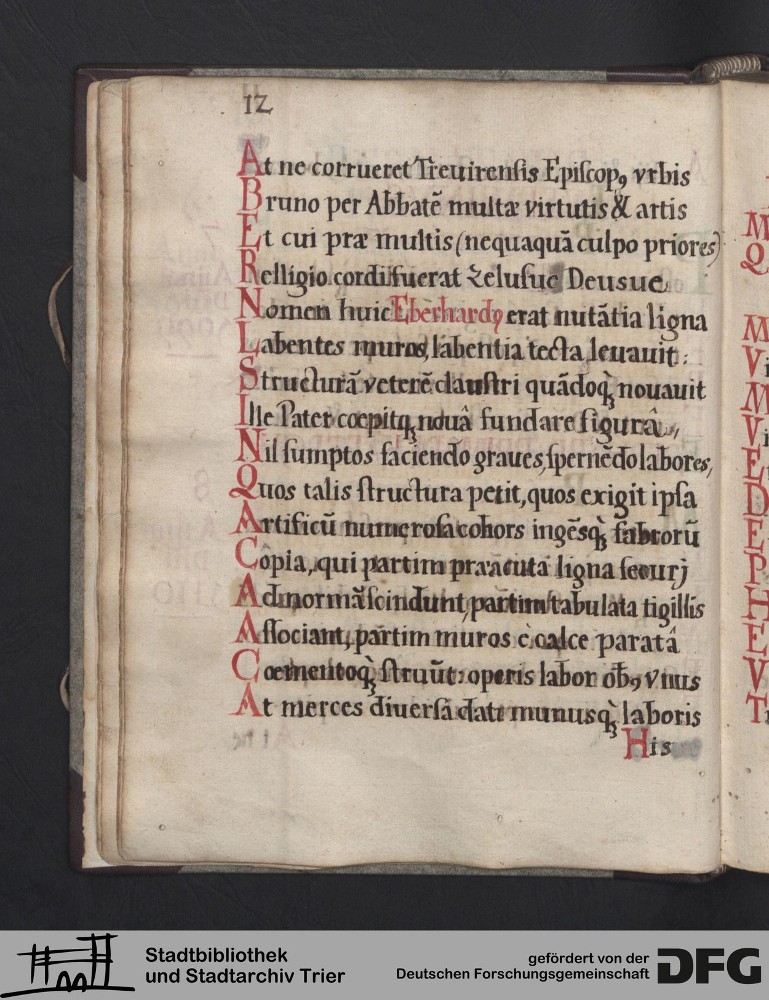 12
At ne corrueret Treuirensis Episcopꝯ vrbis
Bruno per Abbatẽ multæ virtutis & artis
Et cui præ multis (nequaquã culpo priores)
Relligio cordi fuerat zelusue Deusue
Nomen huic Eberhardꝯ erat nutãtia ligna
Labentes muros, labentia tecta leuauit:
Structurã veterẽ claustri quãdoqꝫ nouauit
Ille Pater coepitqꝫ nouâ fundare figurâ,
Nil sumptos faciendo graues, spernẽdo labores,
Quos talis structura petit, quos exigit ipsa
Artificũ numerosa cohors ingẽsqꝫ fabrorũ
Côpia, qui partim præacuta ligna securj
Ad normã scindunt, partim tabulata tigillis
Associant, partim muros è calce paratâ
Cœmentoqꝫ struũt: operis labor obꝯ vnus
At merces diuersâ datr munusqꝫ laboris
His
M
Q
M
Vi
M
Vi
E
D
E
P
H
E
V
T
Stadtbibliothek
und Stadtarchiv Trier
gefördert von der
Deutschen Forschungsgemeinschaft
DFG